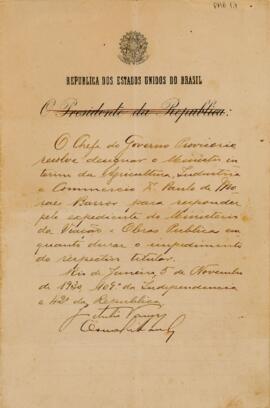 REPUBLICA DOS ESTADOS UNIDOS DO BRASIL
O Presidente da Republica:
O Chefe do Governo Provisorio
resolve designar o Ministro in
terino da Agricultura, Industria
e Commercio Paulo de Mo
raes Barros para responder
pelo expediente do Ministerio
da Viação e Obras Publicas en
quanto durar o impedimento
do respectivo titular.
Rio de Janeiro, 5 de Novembro
de 1930, 109º da Independencia
e 42º da Republica.
Getulio Vargas